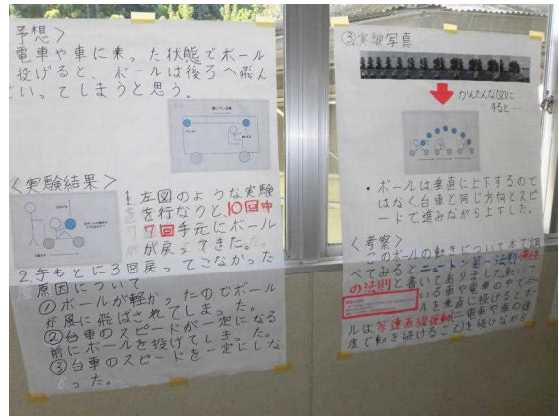 予想>
電車や車に乗った状態でボール
投げると、ボールは後ろへ飛ん
いってしまうと思う。
<実験結果>
1.左図のような実験
を行なうと、10回中
7回手元にボール
が戻ってきた。
2.手もとに3回戻ってこなかった
原因について
①ボールが軽かったのでボール
が風に飛ばされてしまった。
②台車のスピードが一定になる
前にボールを投げてしまった。
③台車のスピードを一定にしな
った。
③実験写真
かんたんな図に
すると…
・ボールは垂直に上下するので
はなく台車と同じ方向とスピ
ードで進みながら上下した。
<考察>
このボールの動きについて本で調
べてみるとニュートン第一法則 慣性
の法則と書いてありました。動いて
いる車や電車の中で
ルを垂直に投げると
ルは等速直線運動(=電車や車の速
度で動き続けること)を続けながら